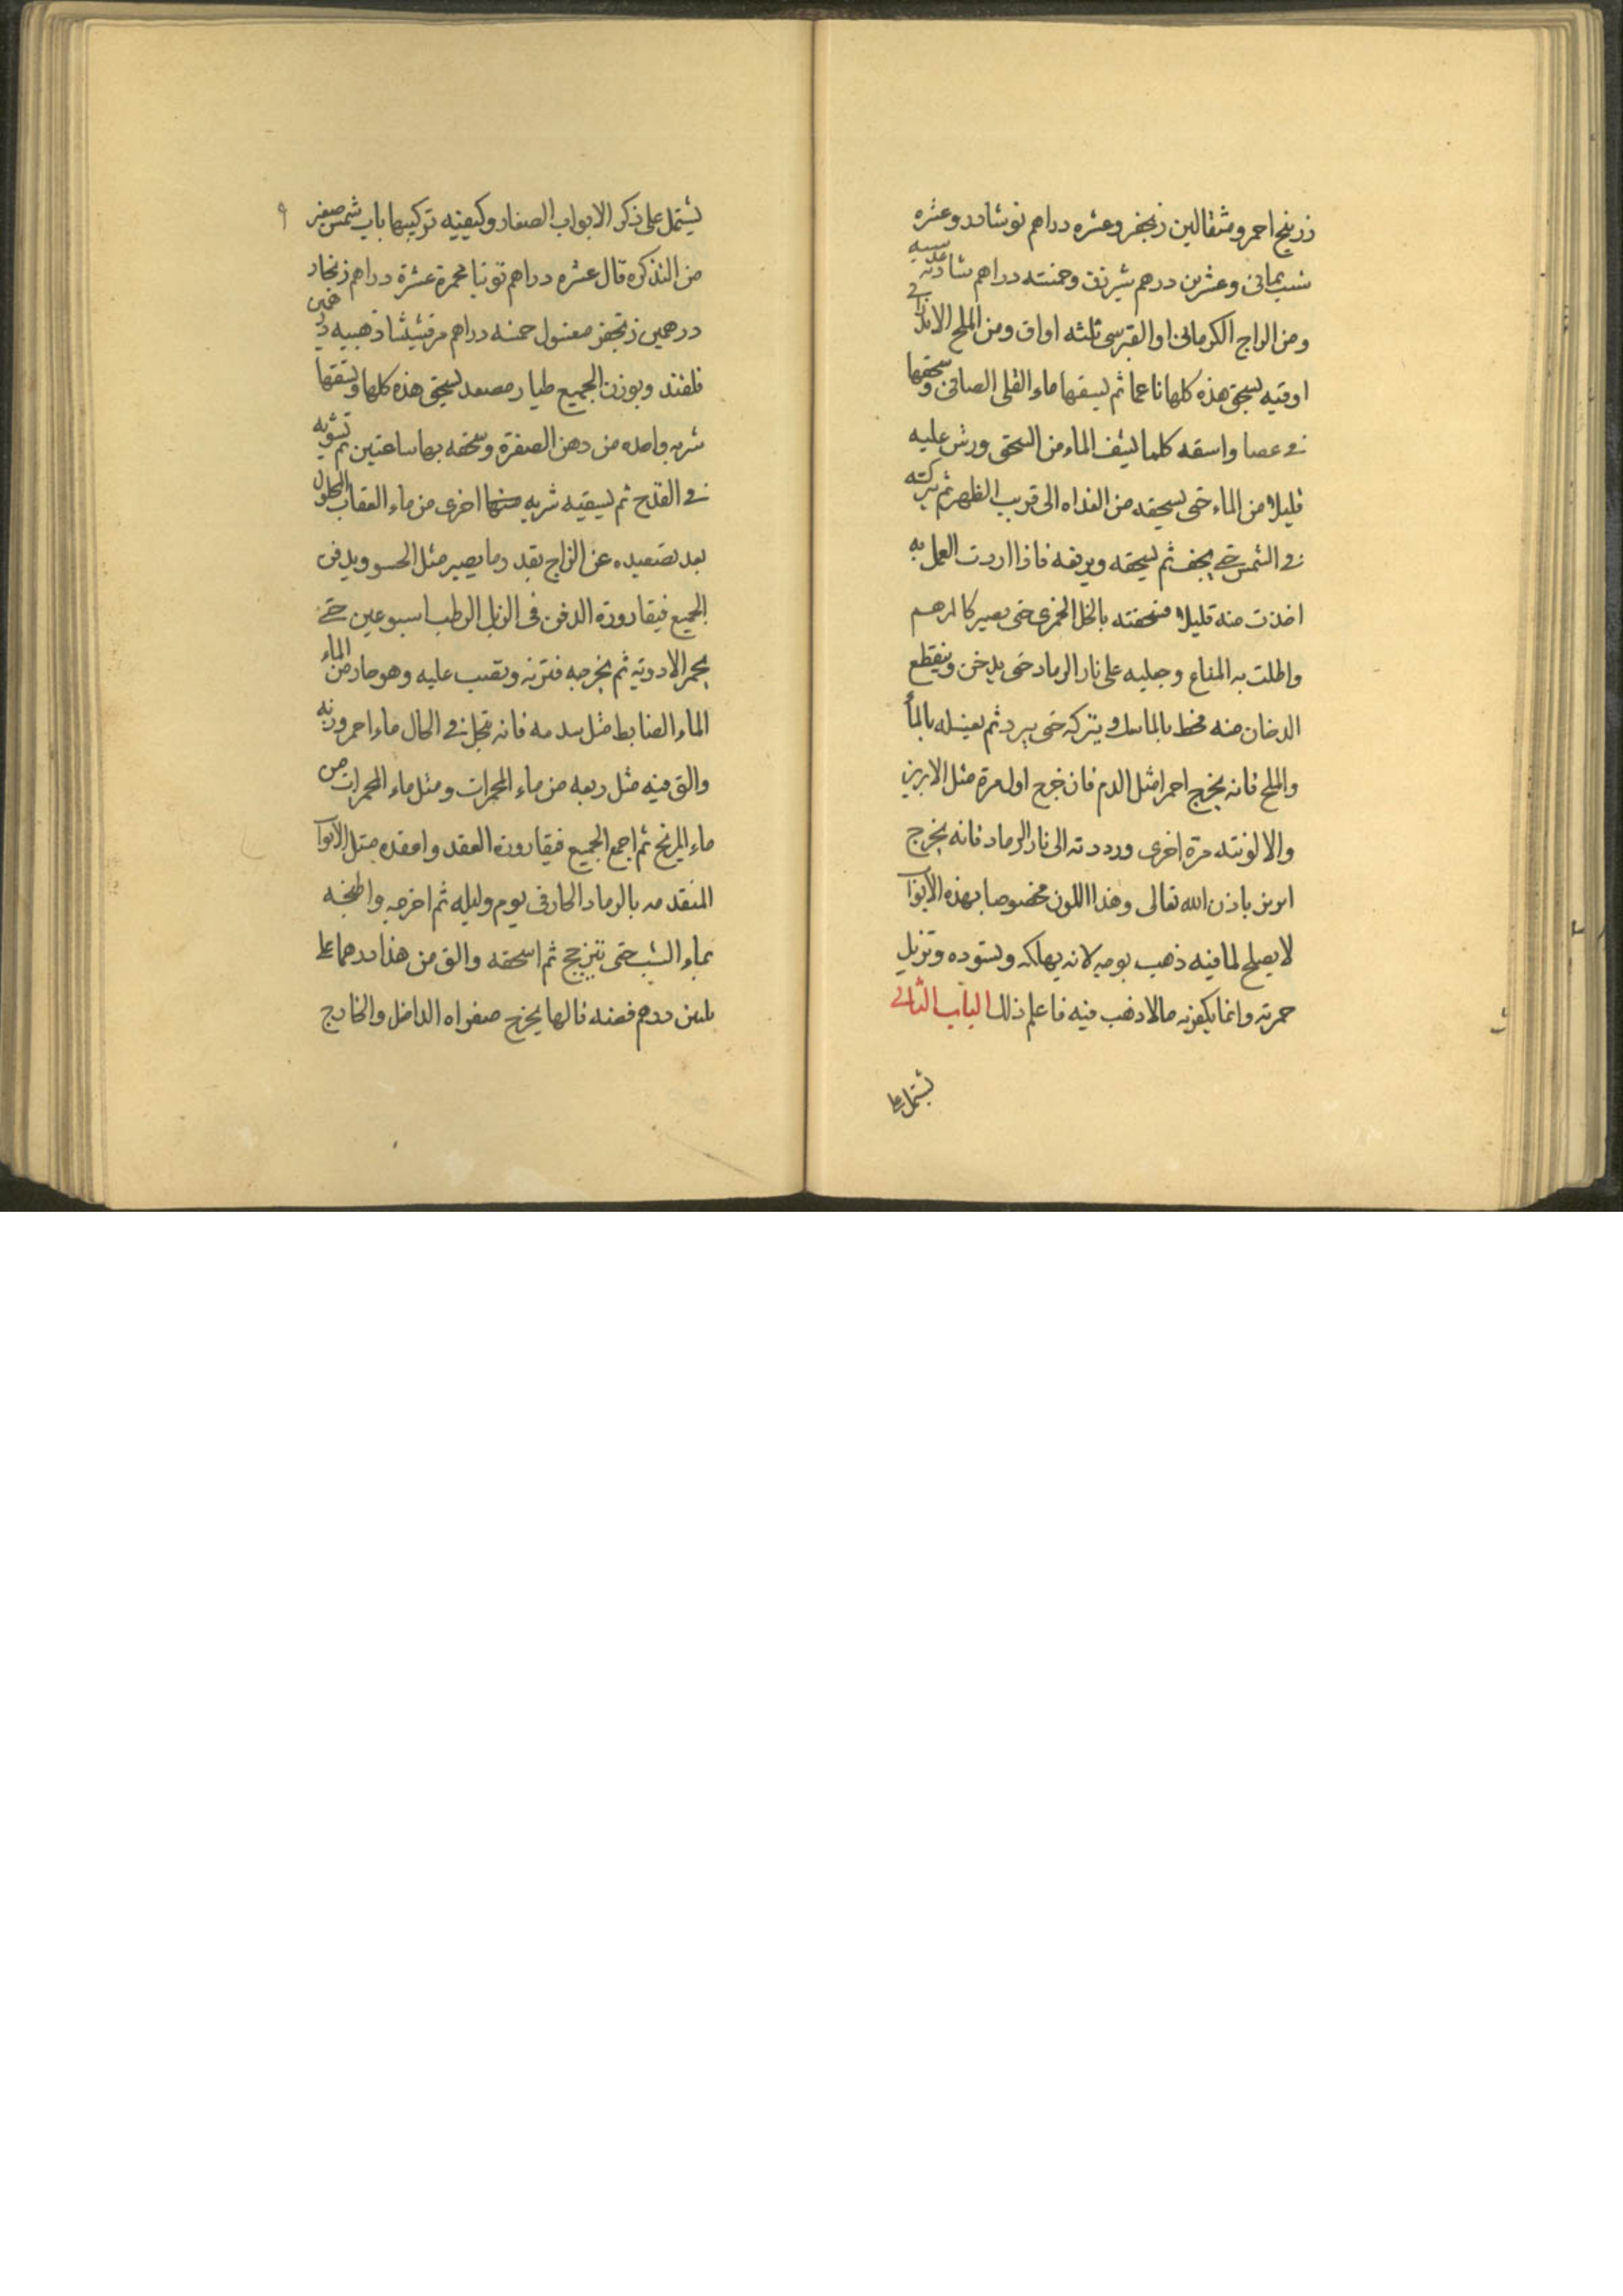 زرنيخ احمر ومثقالين زنجفر وعشره دراهم نوشادر وعشره
شب يمانى وعشرين درهم شيرزق وخمسته دراهم شادنه عدسيه
ومن الزاج الكرمانى او القبرسى ثلثه اواق ومن الملح الاندرانى
اوقيه يسحق هذه كلها ناعما ثم يسقها ماء القلى الصافى وسحقها
فى عصا واسقه كلما نشف الماء من السحق ورش عليه
قليلا من الماء حتى يسحقه من الغداه الى قريب الظهر ثم تركته
فى الشمس حتى يجف ثم يسحقه ويرفعه فاذا اردت العمل به
اخذت منه قليلا فسحقته بالخل الخمرى حتى يصير كالمرهم
واطلت به المتاع وجليه على نار الرماد حتى يدخن وينقطع
الدخان منه فحط بالماسك ويتركه حتى يبرد ثم يغسله بالمأ
والملح فانه يخرج احمر مثل الدم فان خرج اول مرة مثل الابريز
والا لونته مرة اخرى ورددته الى نار الرماد فانه يخرج
ابريز باذن الله تعالى وهذا اللون مخصوصا بهذه الابوا
لا يصلح لما فيه ذهب بوجه لانه يهلكه ويسوده وتزيل
حمرته وانما يكفونه مالا ذهب فيه فاعلم ذلك الباب الثانى
يشتمل على
يشتمل على ذكر الابواب الصغار وكيفيه تركيبها باب شمس صغير ٩
من التذكره قال عشره دراهم توتيا محمرة عشرة دراهم زنجار
درهمين زنجفر مغسول خمسه دراهم مرقشيشا ذهبيه درهمين
قلقند وبوزن الجميع طيار مصعد يسحق هذه كلها وتسقها
شربه واحده من دهن الصفرة وسحقه بها ساعتين ثم تشويه
فى القدح ثم يسقيه شربه اخرى من ماء العقاب المحلول
بعد تصعيده عن الزاج بقدر ما يصير مثل الحسو ويدفن
الجميع فيقارورة الدفن فى الزبل الرطب اسبوعين حتى
يحمر الادويه ثم يخرجه فتزنه وتصب عليه وهو حار من الماء
الماء الضابط مثل سدسه فانه ينحل فى الحال ماء احمر وزنه
والق فيه مثل ربعه من ماء المحمرات ومثل ماء المحمرات من
ماء المريخ ثم اجمع الجميع فيقارورة العقد واعقده مثل الابوا
المتقدمه بالرماد الحار فى يوم وليله ثم اخرجه واطبخه
بماء الشب حتى يتزيج ثم اسحقه والق من هذا درهما على
ستين درهم فضه فانها يخرج صفراء الداخل والخارج